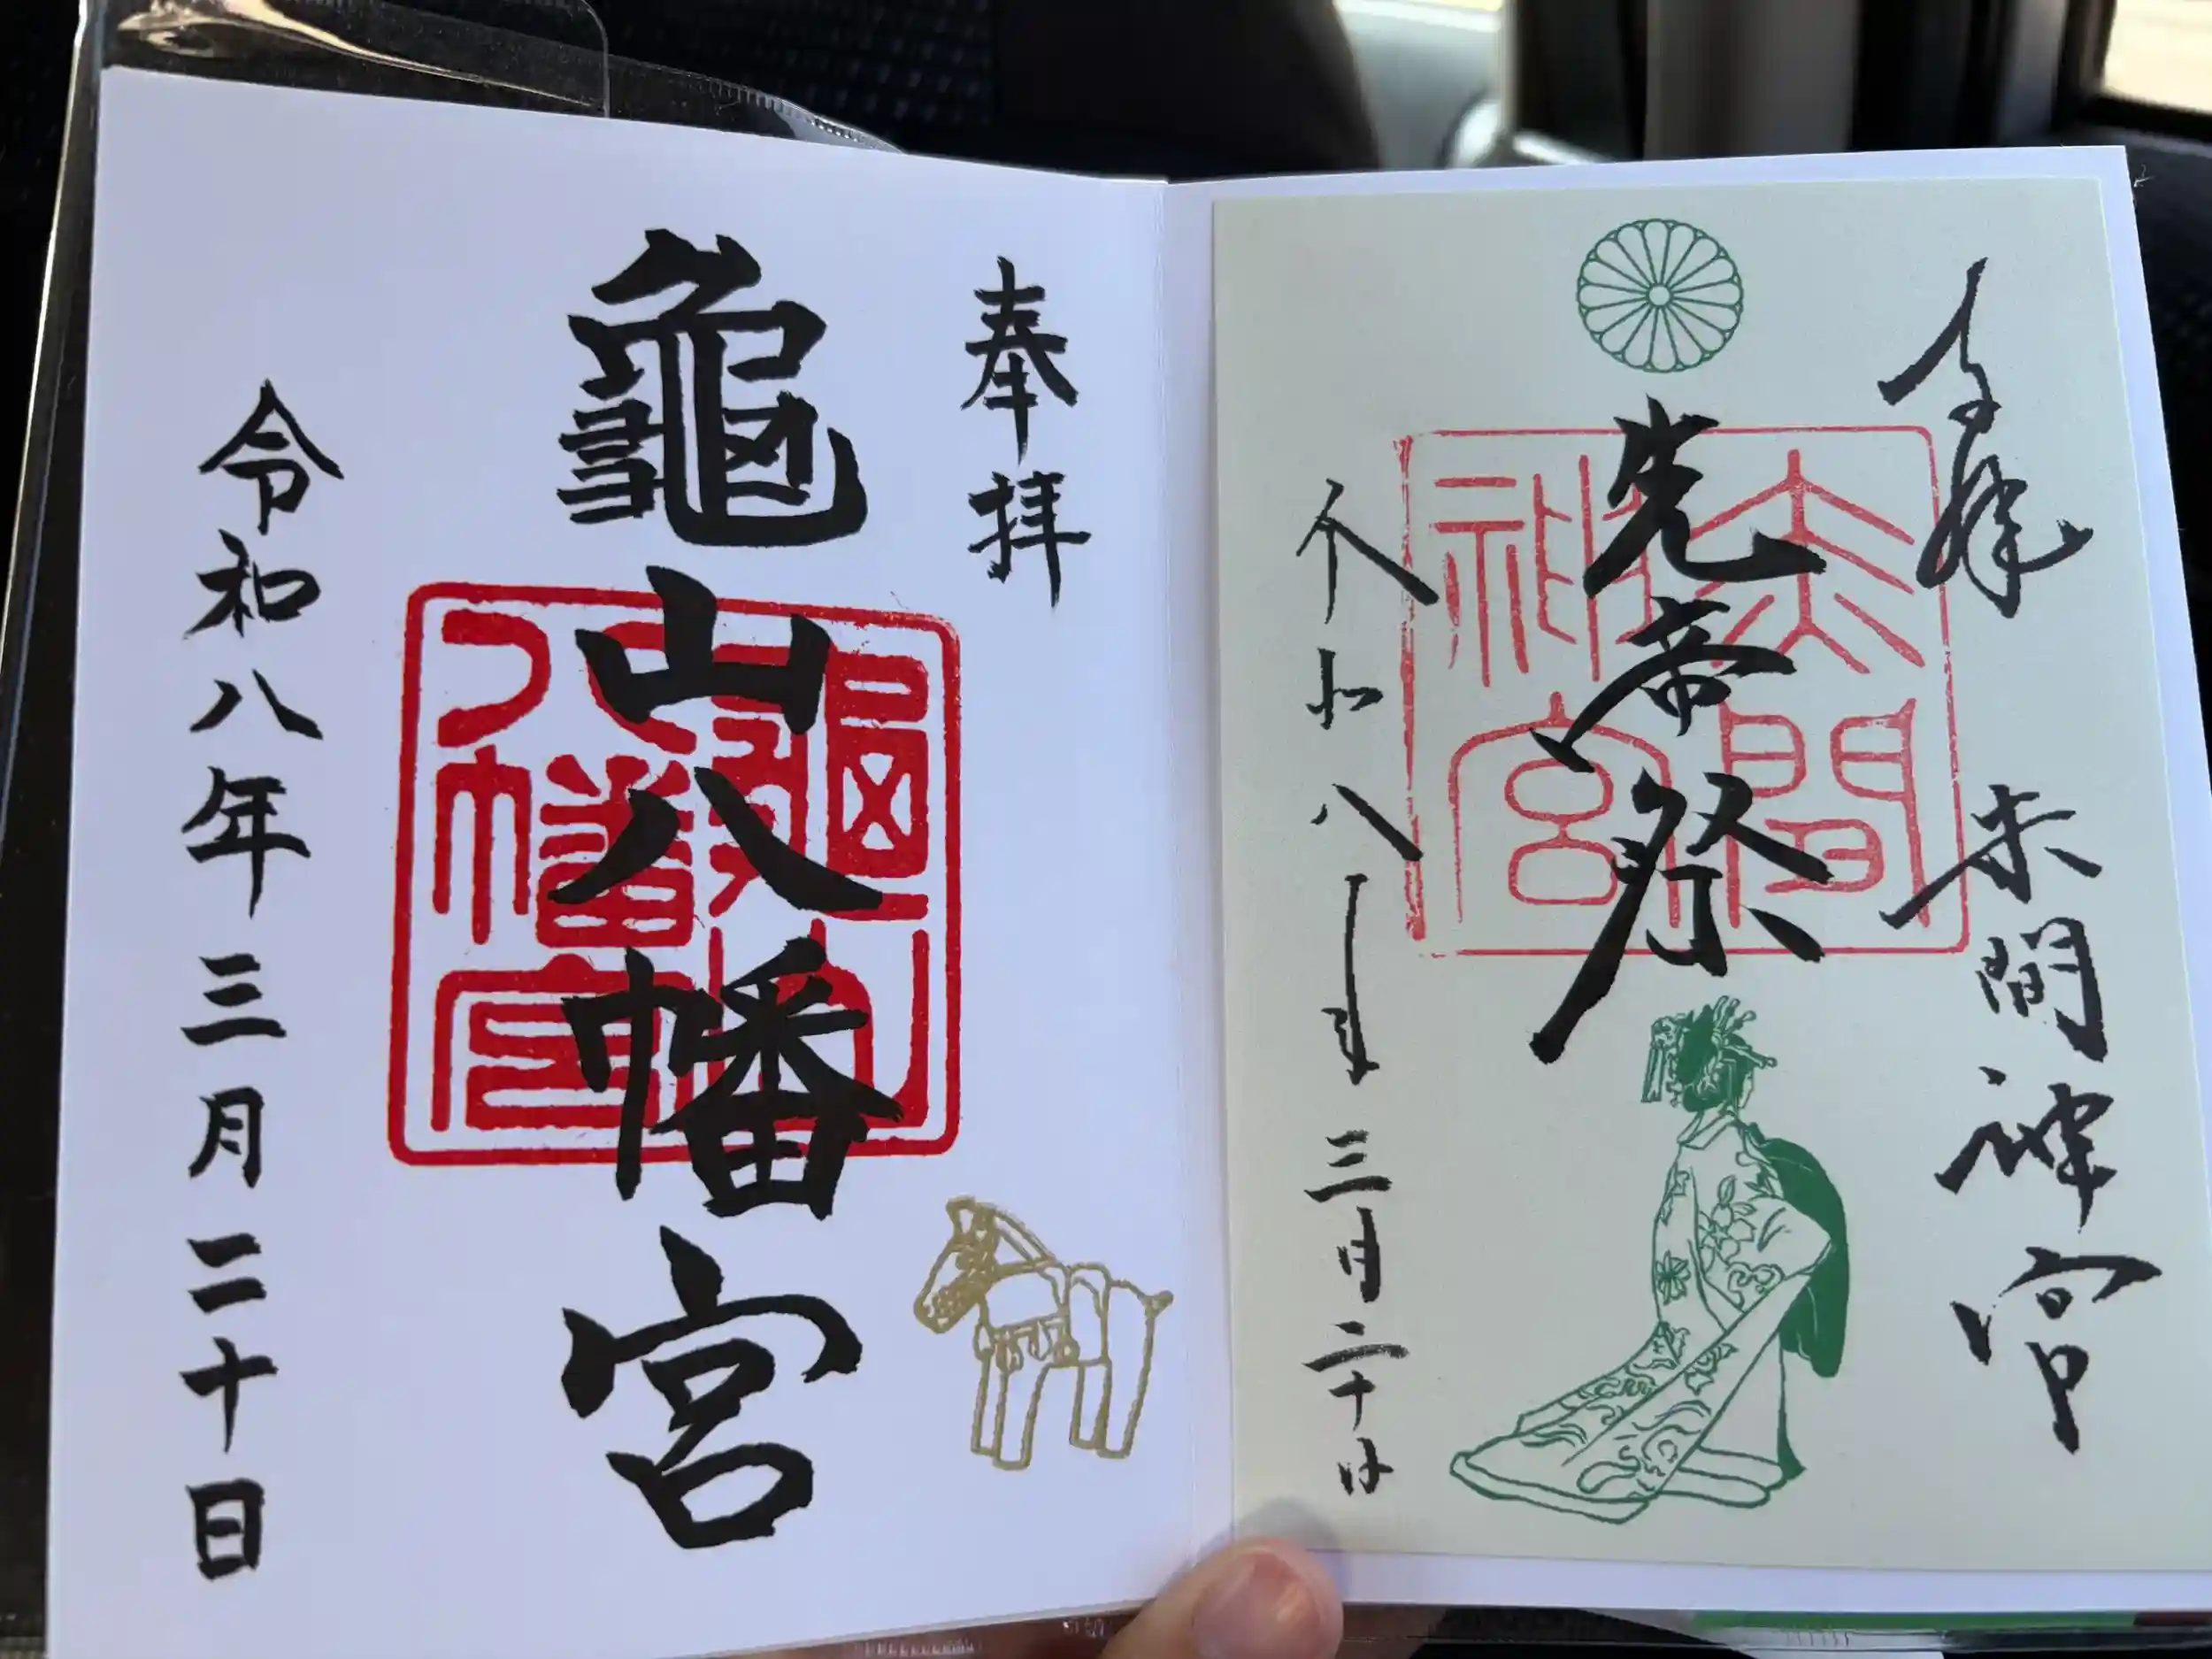 奉拝
先帝祭
赤間神宮
令和八年三月二十日
赤間
神宮
奉拝
龜山八幡宮
令和八年三月二十日
龜山
八幡宮